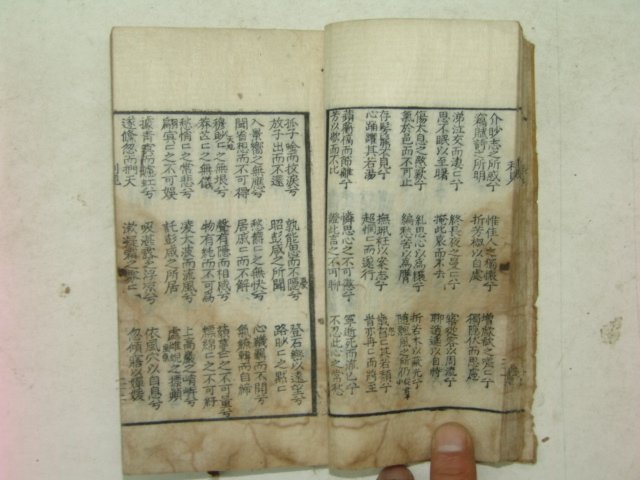 介眇志之所惑亇
竊賦詩之所明
惟佳人之獨懷亇
折芳椒以自處
增歔欷之嗟〻亇
獨隱伏而思慮
涕泣交而凄〻亇
思不眠以至曙
終長夜之曼〻亇
掩此哀而不去
寤從容以周流亇
聊逍遙以自恃
傷太息之愍歎亇
氣於邑而不可止
糺思心以爲纕亇
編愁苦以爲膺
折若木以蔽光亇
隨飄風之所仍
存髣髴而不見亇
心踊躍其若湯
撫珮衽以案志亇
超惘〻而遂行
歲曶〻其若頹亇
旹亦冉〻而將至
薠蘅槁而節離亇
芳以歇而不比
憐思心之不可懲亇
證此言之不可聊
寧逝死而流亡亇
不忍此心之常愁
孤子唫而抆淚兮
放子出而不還
孰能思而不隱兮
昭彭咸之所聞
登石巒以遠望兮
路眇〻之默〻
入景響之無應兮
聞省想而不可得
愁鬱〻之無快兮
居戚〻而不可解
心鞿羈而不開兮
氣繚轉而自締
穆眇〻之無垠兮
莽芒〻之無儀
聲有隱而相感兮
物有純而不可爲
藐蔓〻之不可量兮
縹綿〻之不可紆
愁悄〻之常悲兮
翩冥〻之不可娛
凌大波而流風兮
託彭咸之所居
上高巖之峭岸兮
處雌蜺之標顚
據靑冥而攄虹兮
遂儵忽而捫天
吸湛露之浮涼兮
漱凝霜之雰〻
依風穴以自息兮
忽傾寤以嬋媛